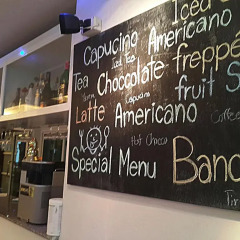 Iced
Capucino Americano
Iced Tea
freppé
Tea Choccolate
fruit S
Capucino
Latte Americano
Coffee
Hot Choco
Special Menu
Banc
Fir